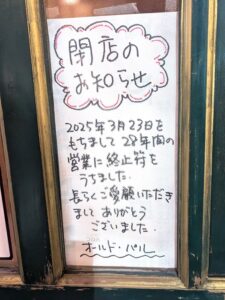 閉店の
お知らせ
2025年3月23日を
もちまして 28年間の
営業に終止符を
うちました.
長らくご愛顧いただき
まして ありがとう
ございました.
オールド・パル